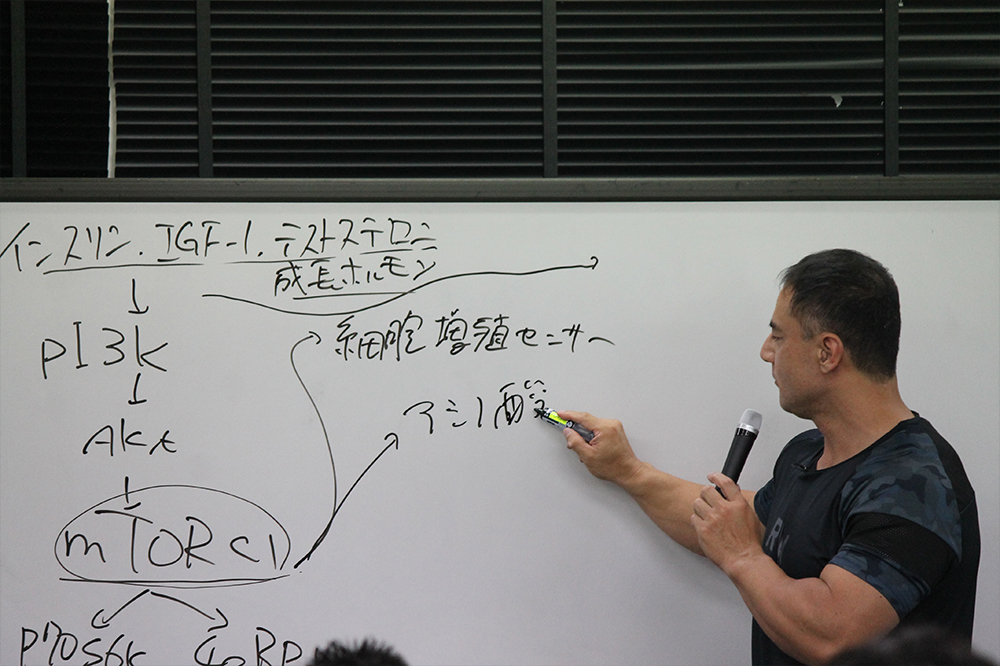 インスリン.IGF-1.テストステロン
成長ホルモン
細胞増殖センサー
PI3K
アミノ酸
Akt
mTORC1
P70S6K